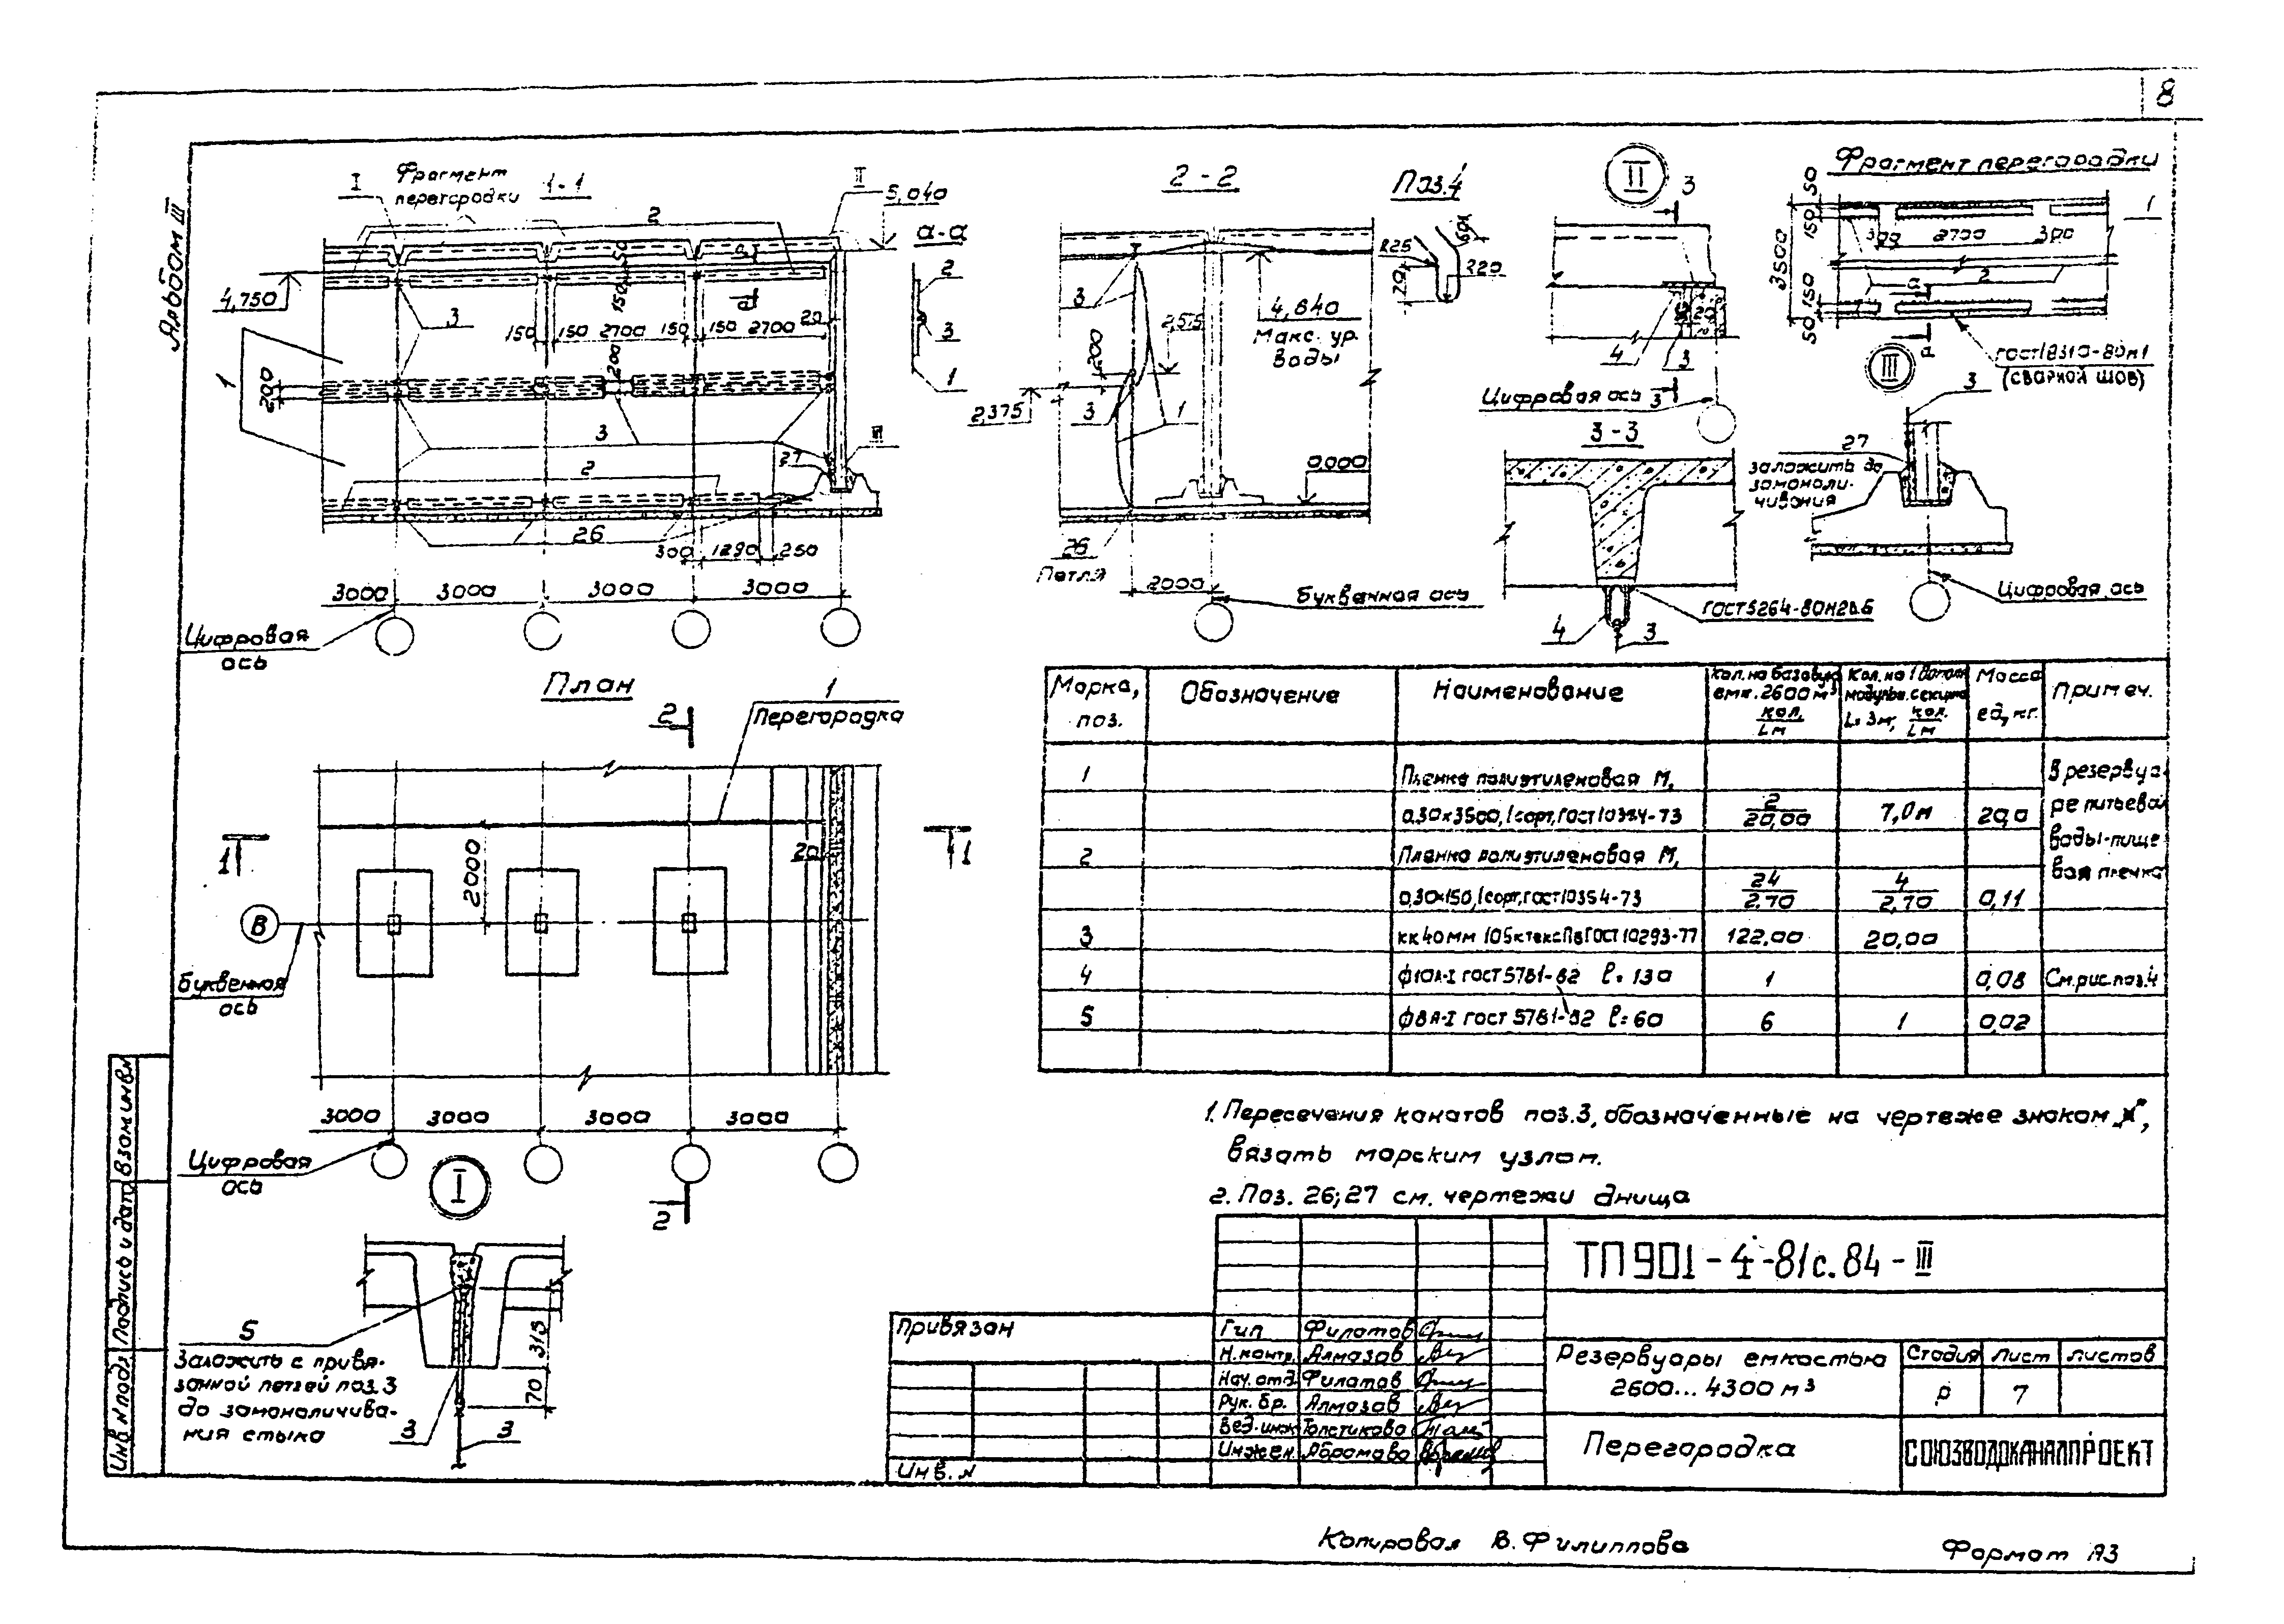 8
Альбом III
I
Фрагмент
перегородки
1-1
II
5,040
2
а-а
50
а
4,750
150
3
150
150
2700
150
150
2700
20
2
3
1
1
200
200
3
27
III
2
26
300
1290
250
3000
3000
3000
3000
Цифровая
ось
2-2
3
4,640
Макс. ур.
воды
200
2,375
3
1
0.000
26
Петля
2000
Буквенная ось
Поз.4
R25
R20
II
3
20
4
3
Цифровая ось
3
3-3
ГОСТ 5264-80
4
3
Фрагмент перегородки
50
150
3500
150
50
300
2700
300
1
2
а
а
ГОСТ 18310-80н1
(сварной шов)
III
3
27
заложить до
замоноли-
чивания
Цифровая ось
План
2
1
Перегородка
1
1
2000
20
В
Буквенная
ось
3000
3000
3000
3000
Цифровая
ось
2
I
5
Заложить с привя-
занной петлей поз.3
до замоноличива-
ния стыка
315
70
3
3
Марка,
поз.
Обозначение
Наименование
Кол. на базовую
емк. 2600 м³
кол.
Lм
L=3м, кол.
Lм
Масса
ед, кг.
Примеч.
1 Пленка полиэтиленовая М, В резервуа-
0.30х3500, 1сорт, ГОСТ 10354-73 2/20,00 7,0м 20,0 ре питьевой
2 Пленка полиэтиленовая М, воды-пище-
0,30х150, 1сорт, ГОСТ 10354-73 24/2.70 4/2,70 0,11 вая пленка
3 кк 40мм 105ктекс Пв ГОСТ 10293-77 122,00 20,00
4 ф10А-I ГОСТ 5781-82 ℓ=130 1 0,08 См.рис.поз.4
5 ф8А-I ГОСТ 5781-82 ℓ=60 6 1 0,02
1. Пересечения канатов поз.3, обозначенные на чертеже знаком „х",
вязать морским узлом.
2. Поз. 26; 27 см. чертежи днища
ТП 901-4-81с.84-III
Привязан
Инв. N
Гип Филатов
Н.контр. Алмазов
Нач. отд. Филатов
Рук. бр. Алмазов
Вед. инж Толстикова
Инжен. Абрамова
Резервуары емкостью
2600...4300 м³
Стадия Лист Листов
Р 7
Перегородка
СОЮЗВОДОКАНАЛПРОЕКТ
Инв N подл. Подпись и дата Взам инв N
Копировал В. Филиппова
Формат А3